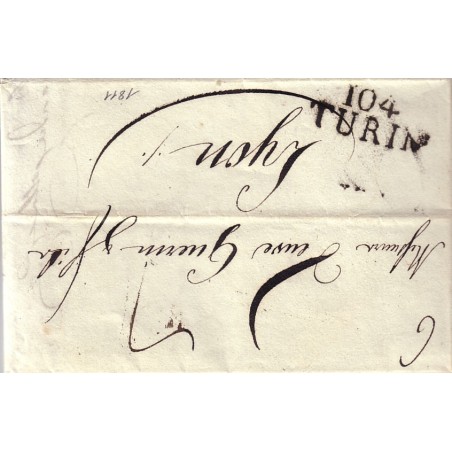 104
TURIN
1811
Messieurs Veuve Guerin & fils
Lyon
6